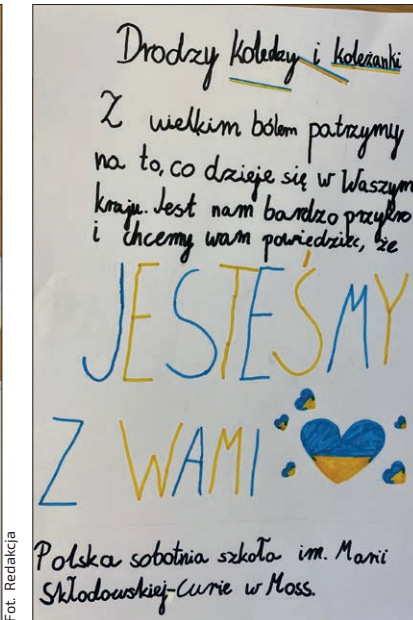 Drodzy koledzy i koleżanki
Z wielkim bólem patrzymy
na to, co dzieje się w Waszym
kraju. Jest nam bardzo przykro
i chcemy wam powiedzieć, że
JESTEŚMY
Z WAMI
Polska sobotnia szkoła im. Marii
Skłodowskiej-Curie w Moss.
Fot. Redakcja